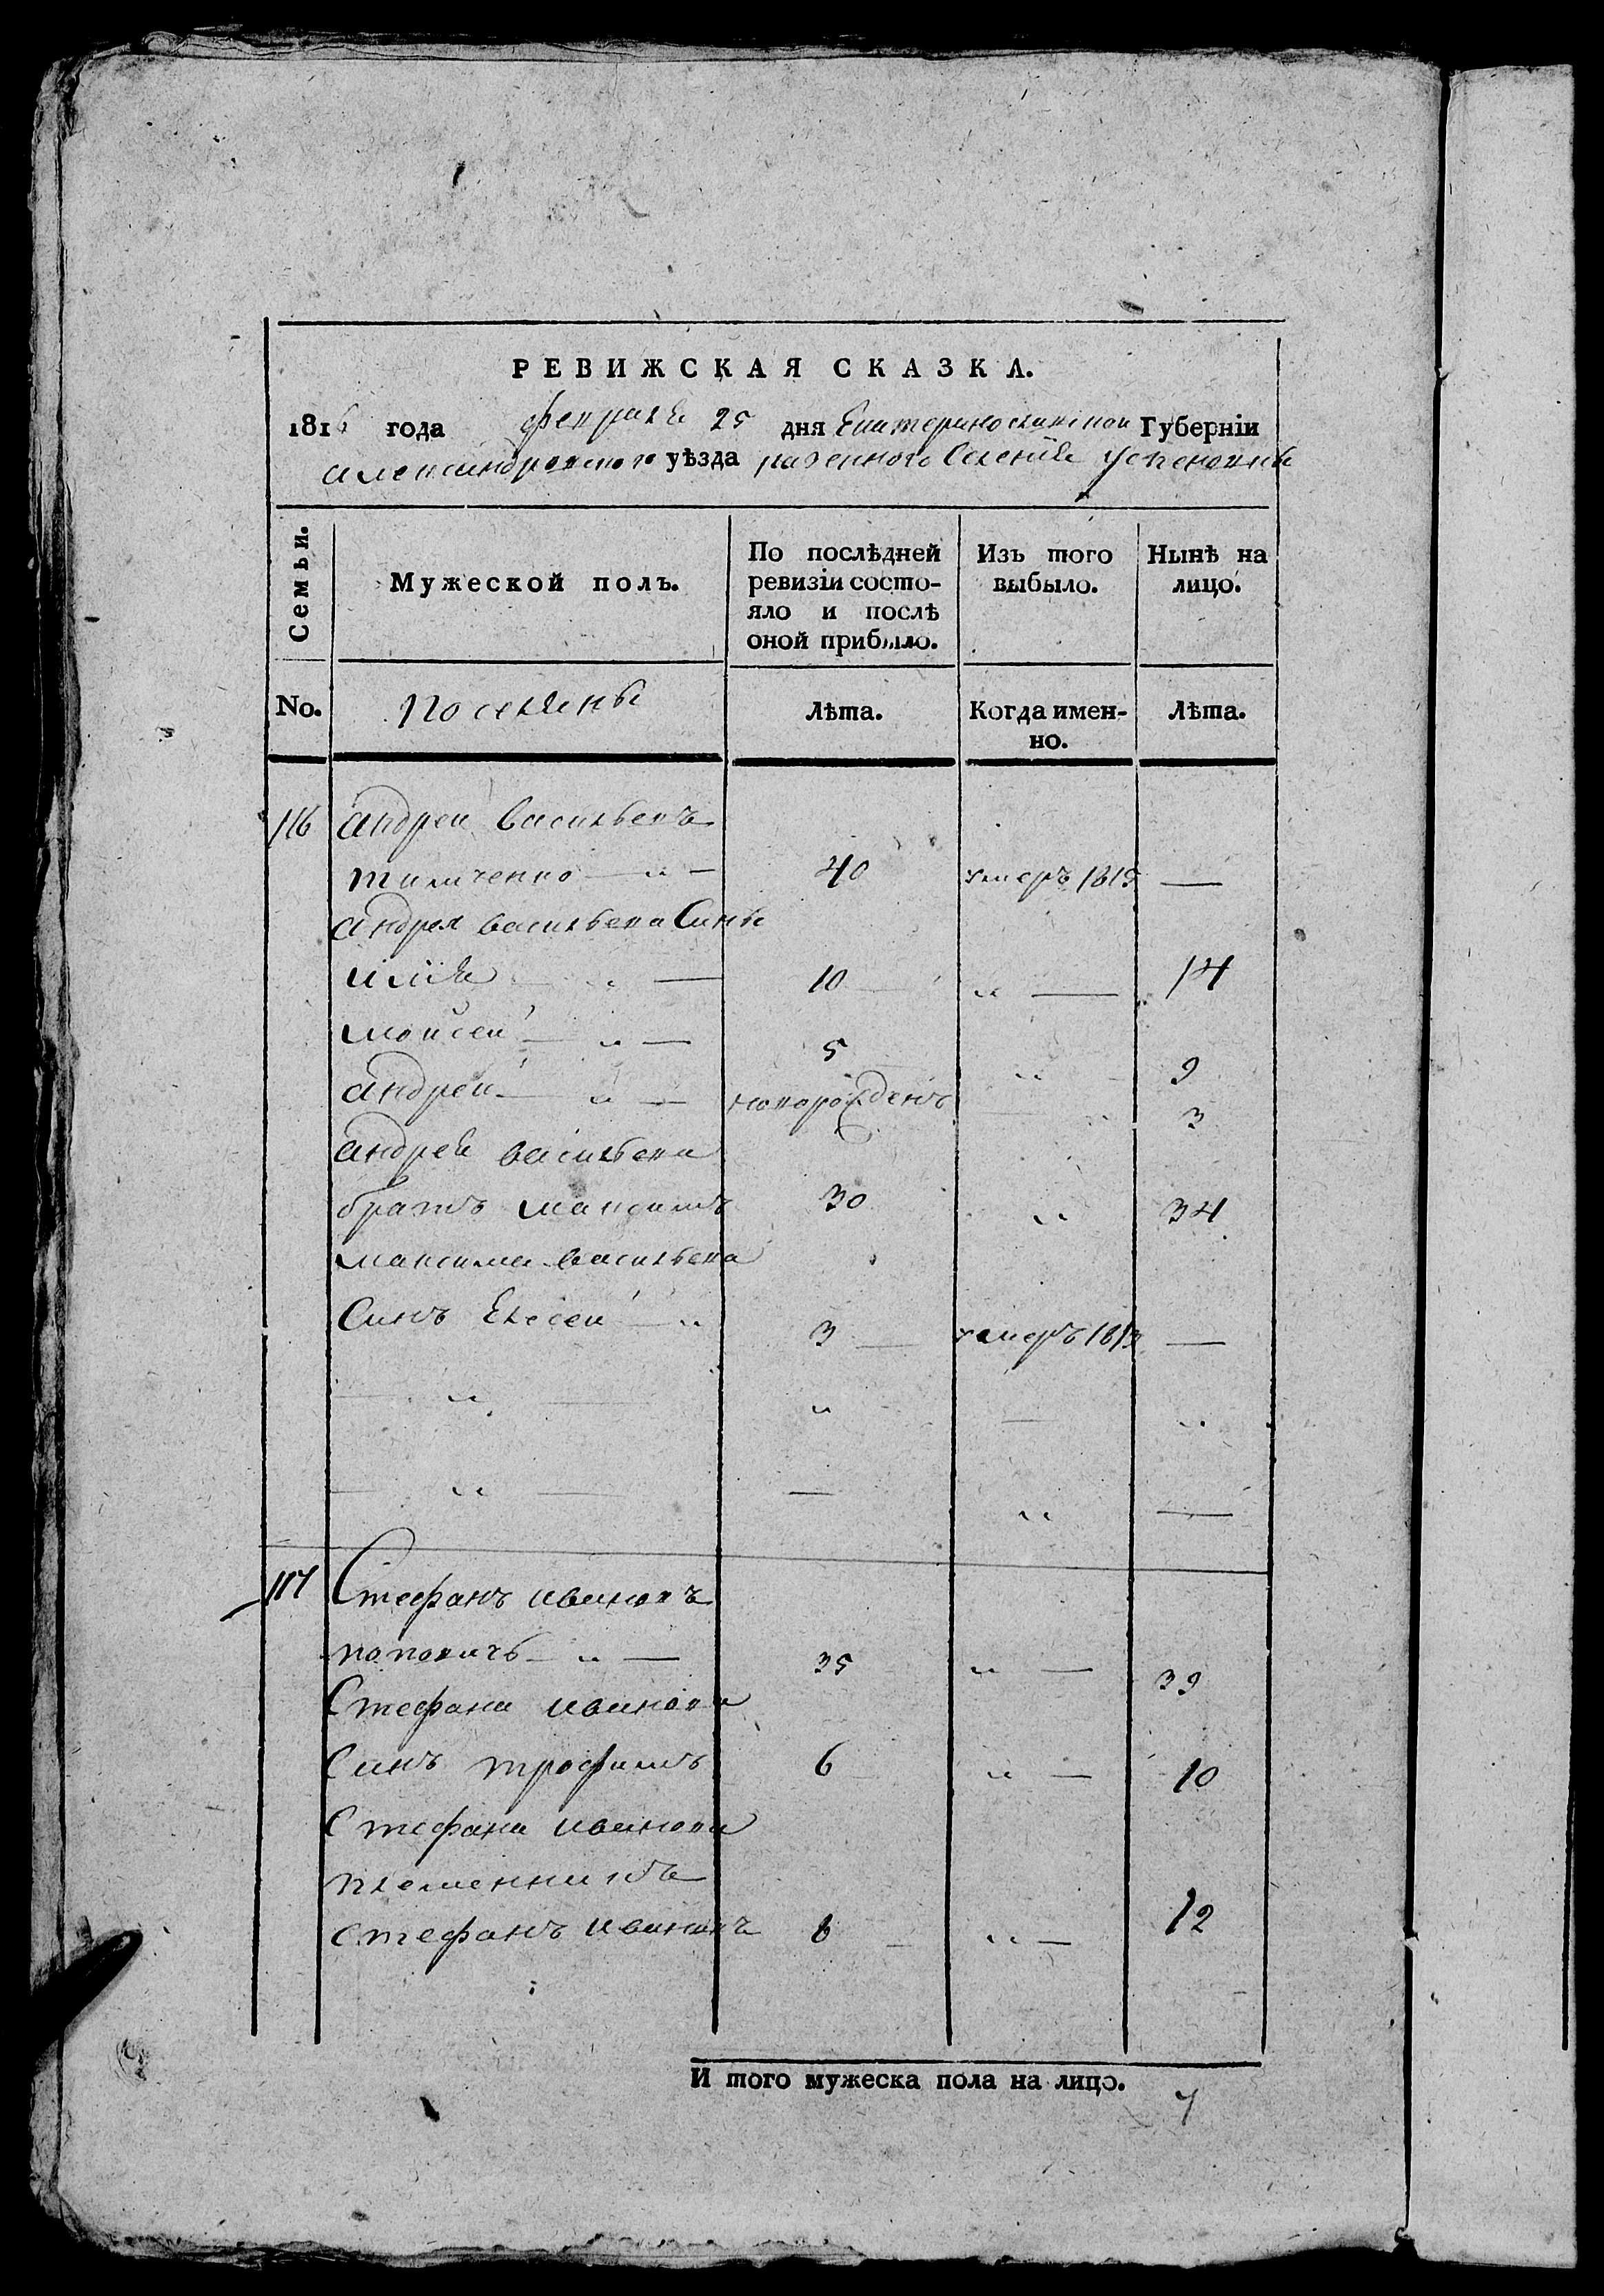 РЕВИЖСКАЯ СКАЗКА.
1816 года февраля 25 дня Екатеринославской Губерніи
александровского уѣзда казенного Селенія Успеновки
Семьи.
Мужеской полъ.
По послѣдней ревизіи состо-
яло и послѣ
оной прибыло.
Изъ того
выбыло.
Нынѣ на
лицо.
No.
Поселяны
Лѣта.
Когда имен-
но.
Лѣта.
116 андрей васильевъ
тимченко — „ — 40 умеръ 1815 —
андрея васильева Сины
илія „ — 10 „ — 14
мойсей — „ — 5 „ 9
андрей — „ — новорожденъ „ 3
андрея васильева
братъ максимъ 30 „ 34
максима васильева
Синъ Елесей — „ 3 — умеръ 1813 —
— „ — „ — „
— „ — — „ —
117 Стефанъ ивановъ
поповичъ — „ — 35 „ — 39
Стефана иванова
Синъ трофимъ 6 „ — 10
Стефана иванова
племенникъ
стефанъ ивановъ 8 — „ — 12
И того мужеска пола на лицо. 7